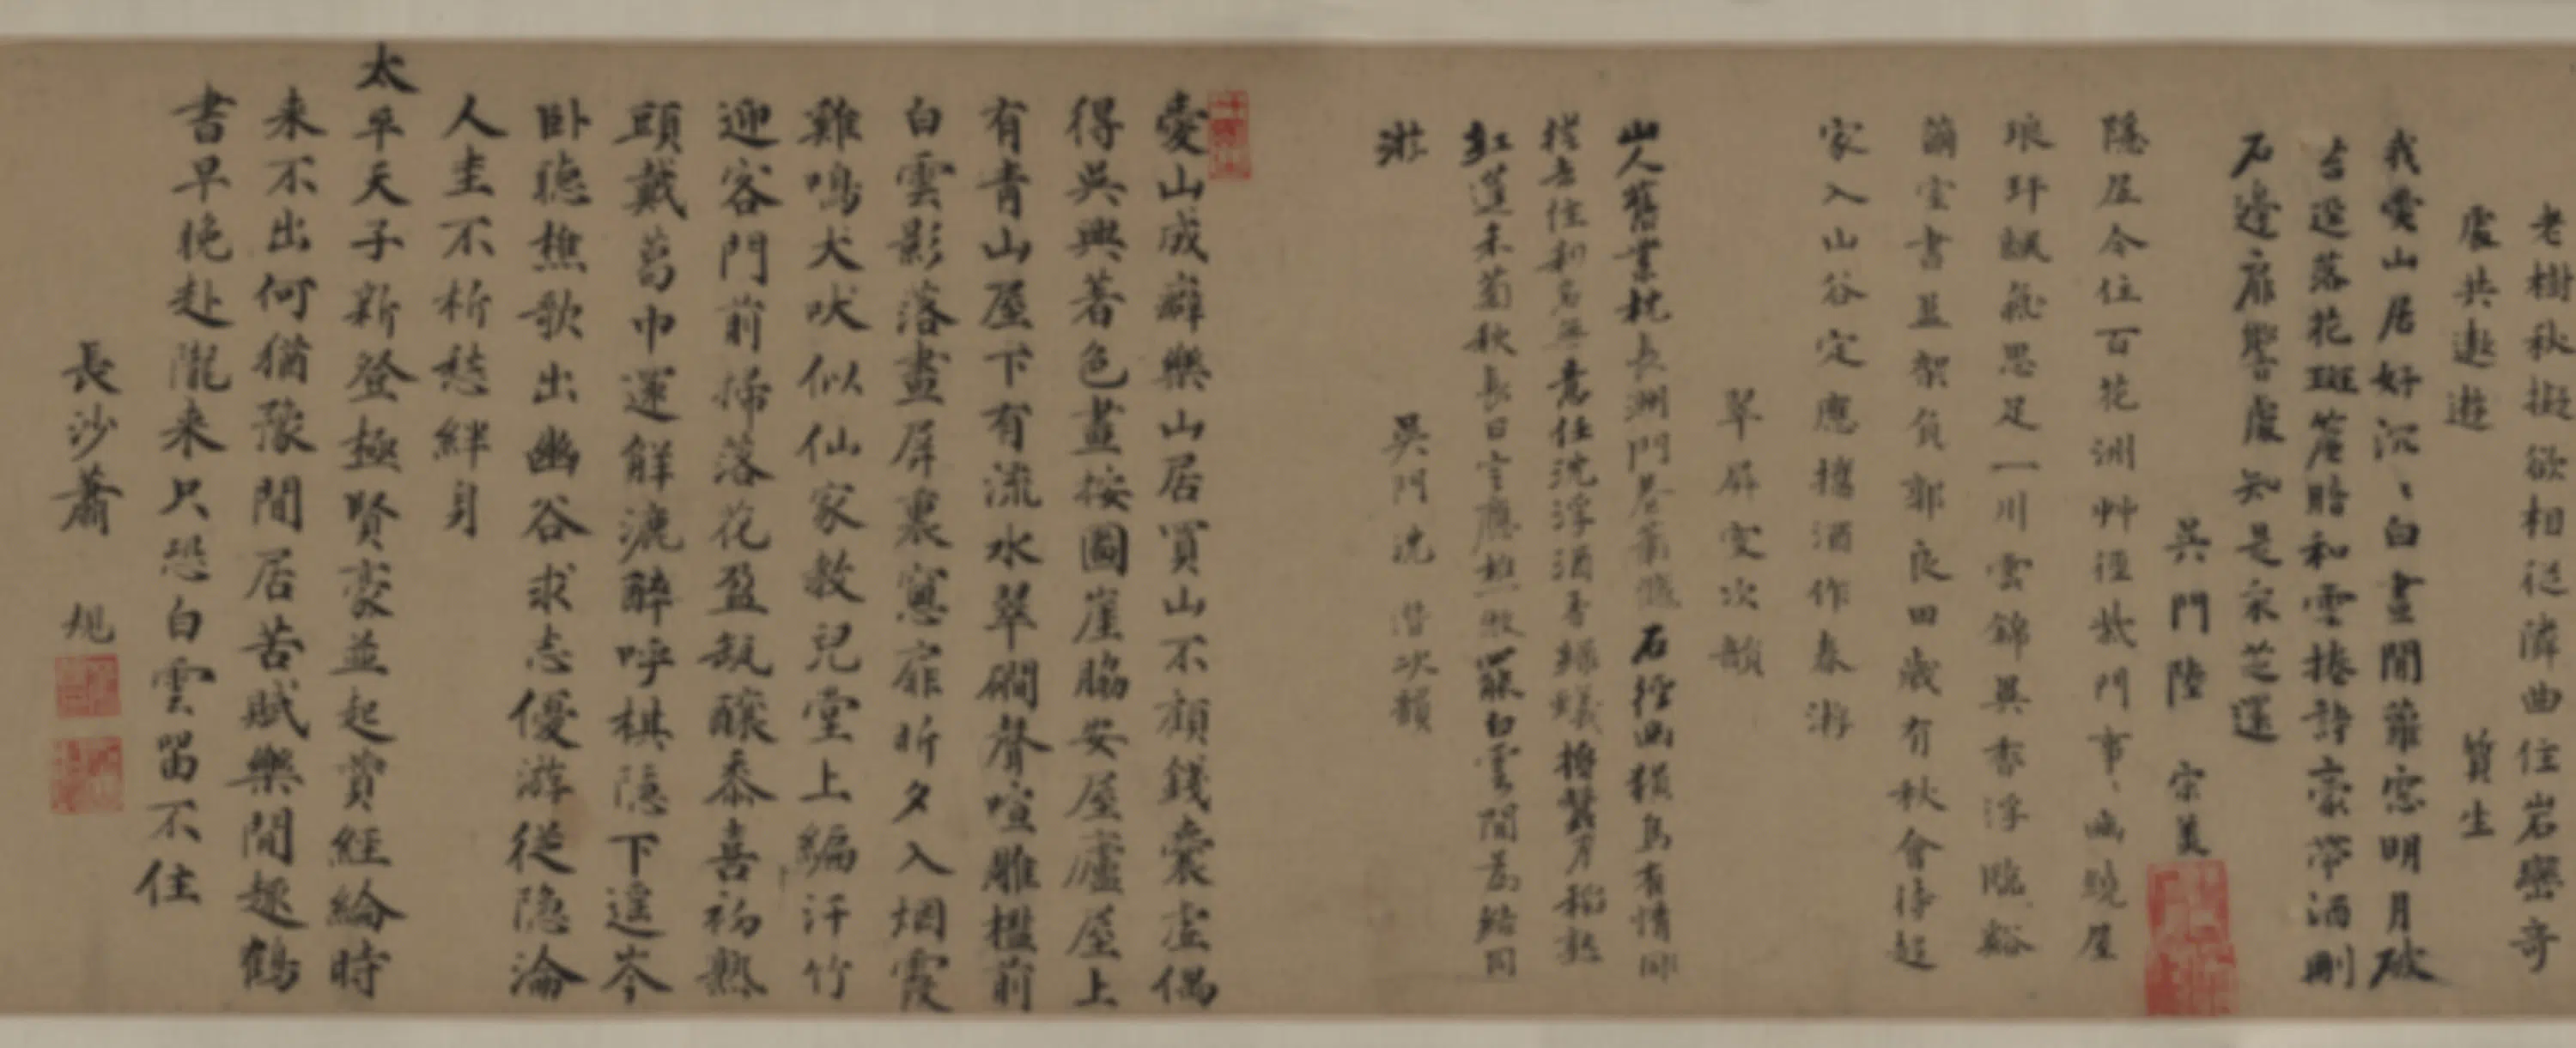 老樹秋擬欲相從薜曲住岩巒奇
處共遨遊　質生
我愛山居好沉沉白晝閒蘿窓明月破
苔逕落花斑詹賠和雲捲詩豪帶酒刪
石邊扉響處知是采芝還
吳門陸宗美
隱居今住百花洲艸徑紫門事、幽繞屋
琅玕飄氣思足一川雲錦異香浮臨谿
蘭室書益架負郭良田歲有秋會待起
家入山谷定應携酒作春游
翠屏安次韻
山人舊業枕長洲門巷蕭 石徑幽猿鳥有情
 住 名無意任沈浮酒香綠蟻
紅蓮 菊秋長日 應 白雲間為結同
游　吳門沈 次韻
愛山成癖樂山居買山不顧錢囊虛偶
得吳興著色畫按圖崖脇安屋廬屋上
有青山屋下有流水翠磵聲喧雕檻前
白雲影落畫屏裏窓扉昕夕入烟霞
雞鳴犬吠似仙家教兒堂上編汗竹
迎客門前掃落花盈瓿釀黍喜初熟
頭戴葛巾還解漉醉呼棋隱下遙岑
卧聽樵歌出幽谷求志優游從隱淪
人圭不析愁絆身
太平天子新登極賢豪並起賁經綸時
来不出何猶豫閒居苦賦樂閒趣鶴
書早晚赴隴来只恐白雲留不住
長沙蕭規